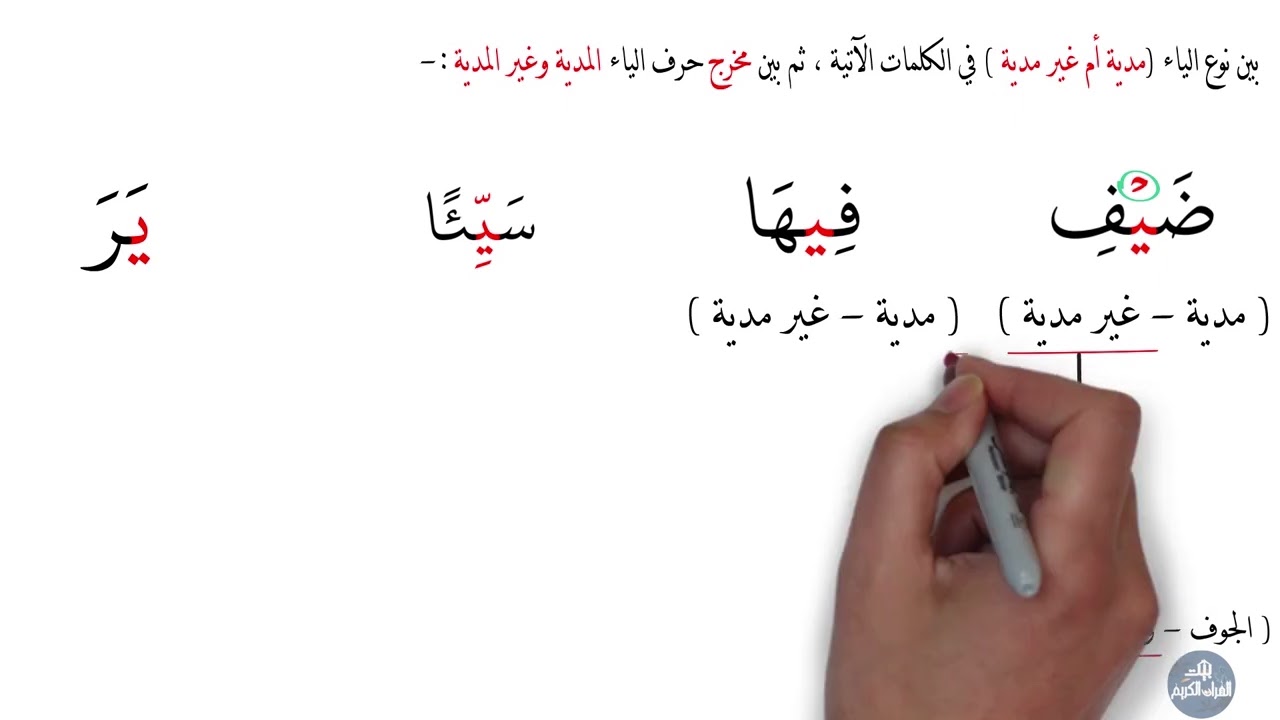 بين نوع الياء (مدية أم غير مدية ) في الكلمات الآتية ، ثم بين مخرج حرف الياء المدية وغير المدية : –
ضَيْفِ فِيهَا سَيِّئًا يَرَ
( مدية – غير مدية ) ( مدية – غير مدية )
( الجوف –
بيت
القرآن الكريم